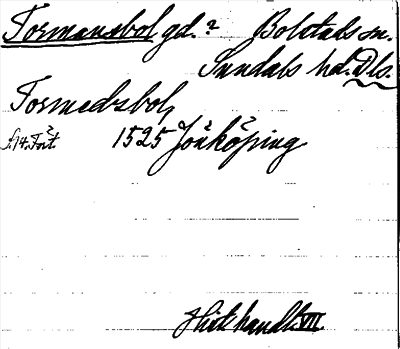 Tormansbol gd.? Bolstads sn.
Sundals hd. Dls.
Tormedzboḷ
1525 Jönköping
Hist. handl. VII.